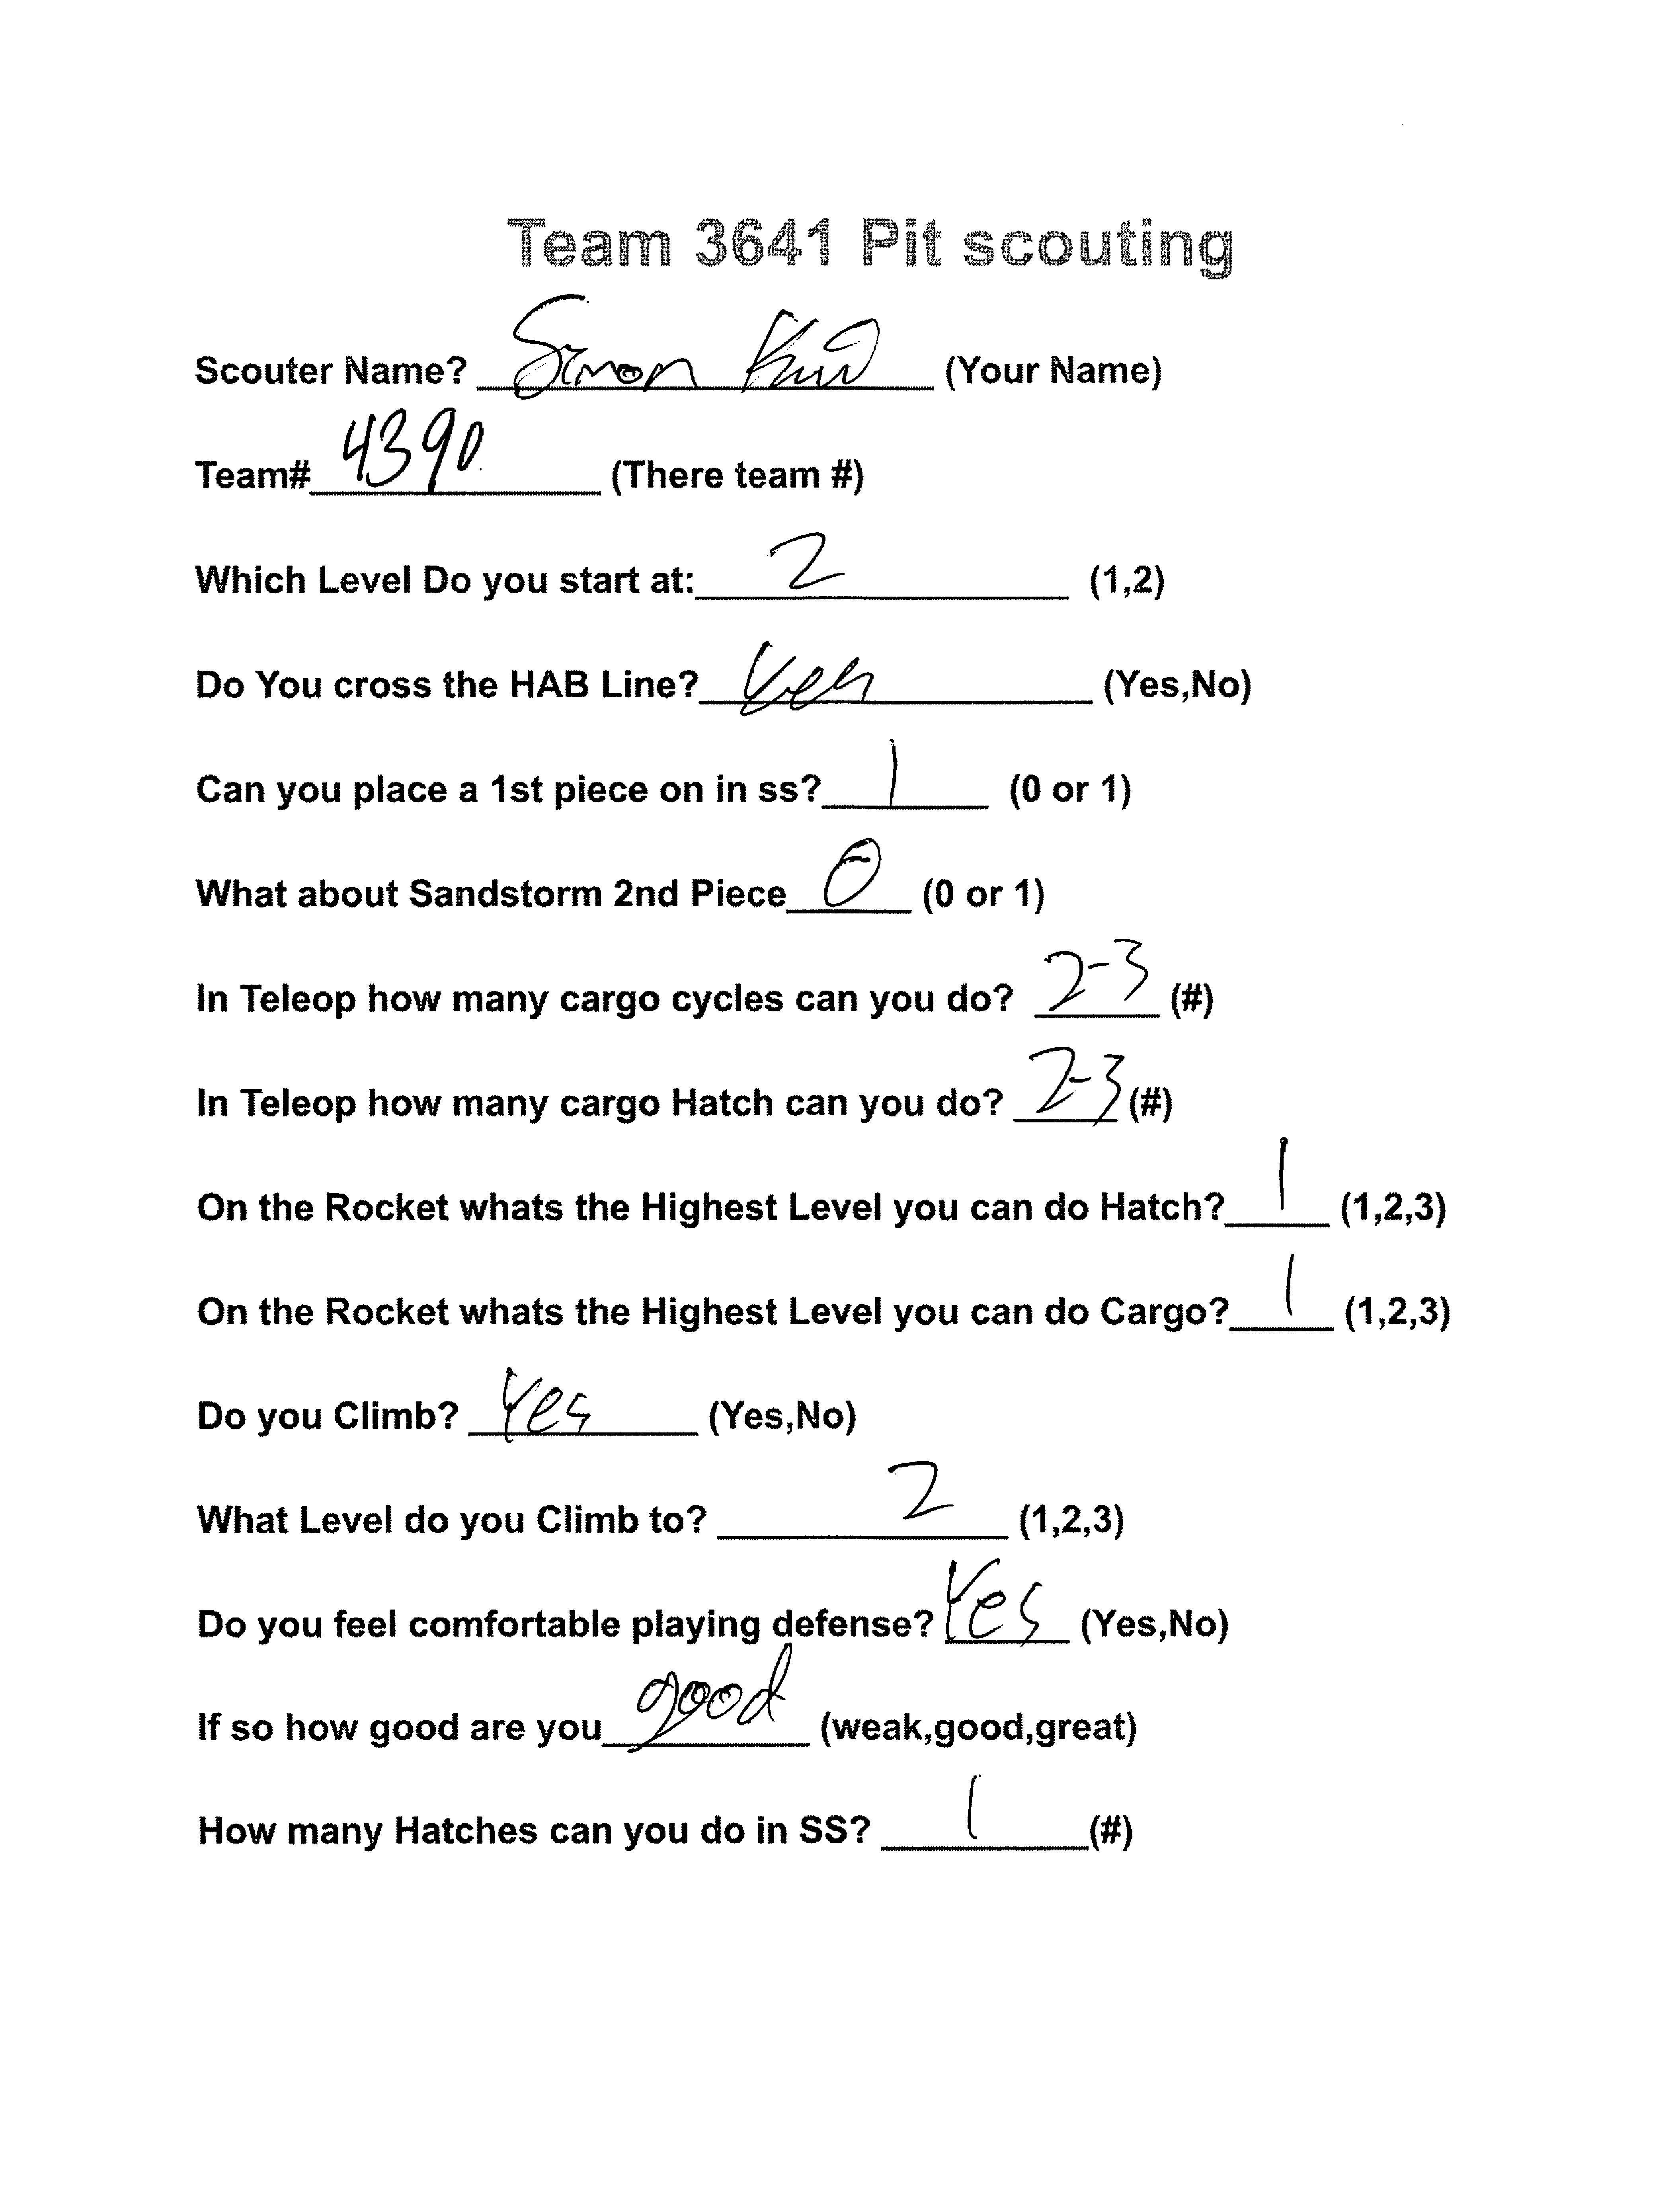 Team 3641 Pit scouting
Scouter Name? Simon (Your Name)
Team# 4390 (There team #)
Which Level Do you start at: 2 (1,2)
Do You cross the HAB Line? Yes (Yes,No)
Can you place a 1st piece on in ss? 1 (0 or 1)
What about Sandstorm 2nd Piece 0 (0 or 1)
In Teleop how many cargo cycles can you do? 2-3 (#)
In Teleop how many cargo Hatch can you do? 2-3 (#)
On the Rocket whats the Highest Level you can do Hatch? 1 (1,2,3)
On the Rocket whats the Highest Level you can do Cargo? 1 (1,2,3)
Do you Climb? Yes (Yes,No)
What Level do you Climb to? 2 (1,2,3)
Do you feel comfortable playing defense? Yes (Yes,No)
If so how good are you good (weak,good,great)
How many Hatches can you do in SS? 1 (#)